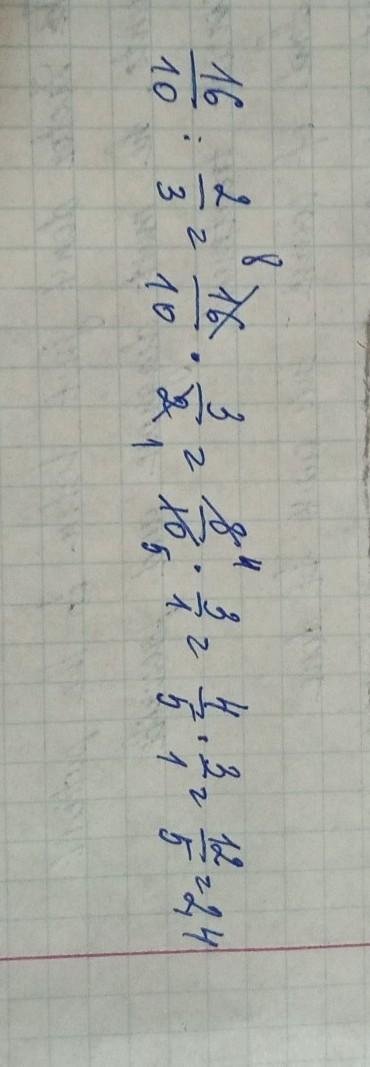 16/10 : 2/3 = 16/10 8 · 3/2 1 = 8/10 4 5 · 3/1 = 4/5 · 3/1 = 12/5 = 2,4